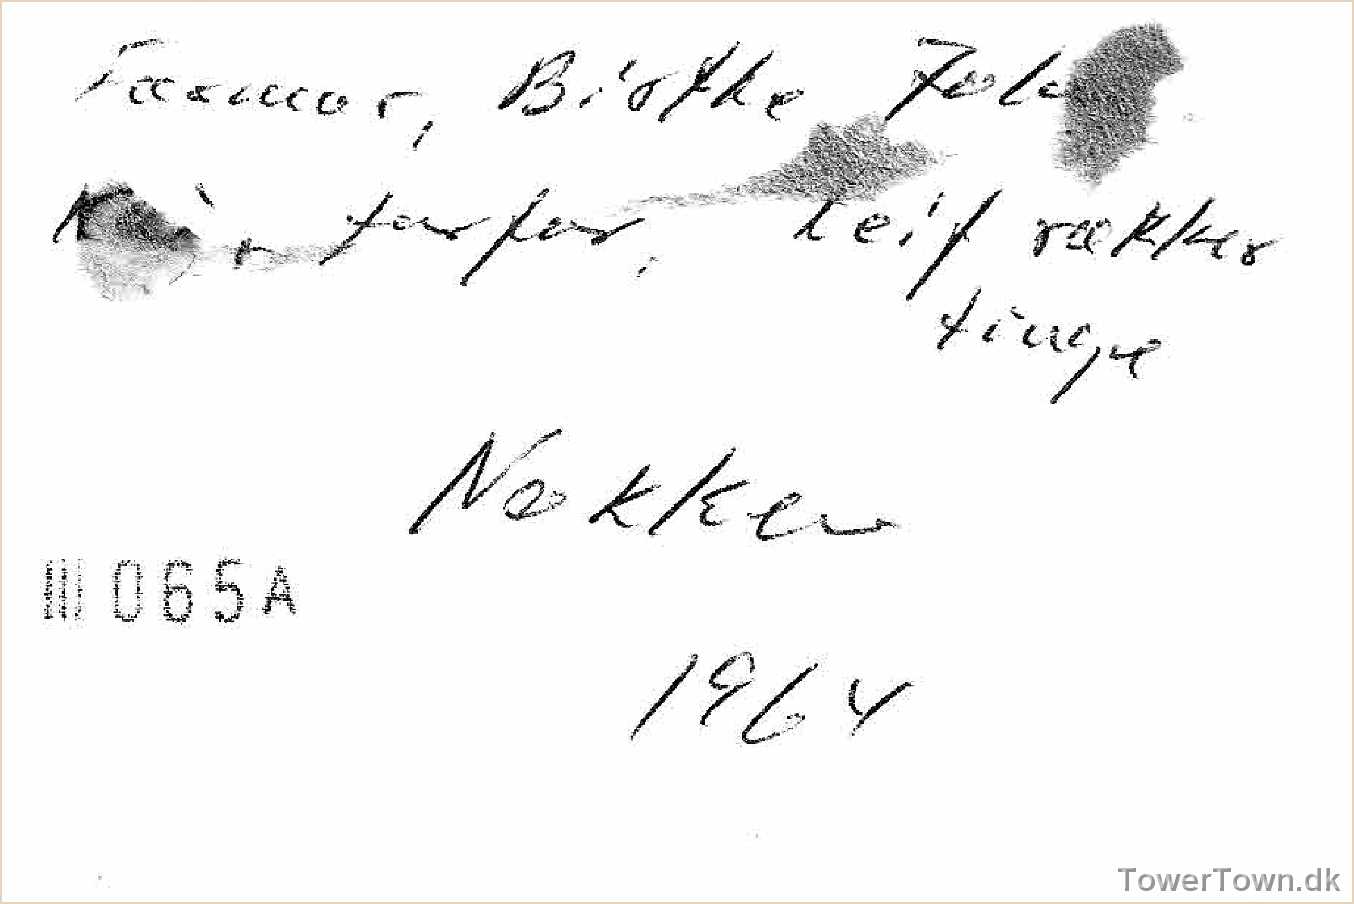 Farmor, Birthe
farfar, Leif rækker
tunge
Nakken
III 065A
1964
TowerTown.dk